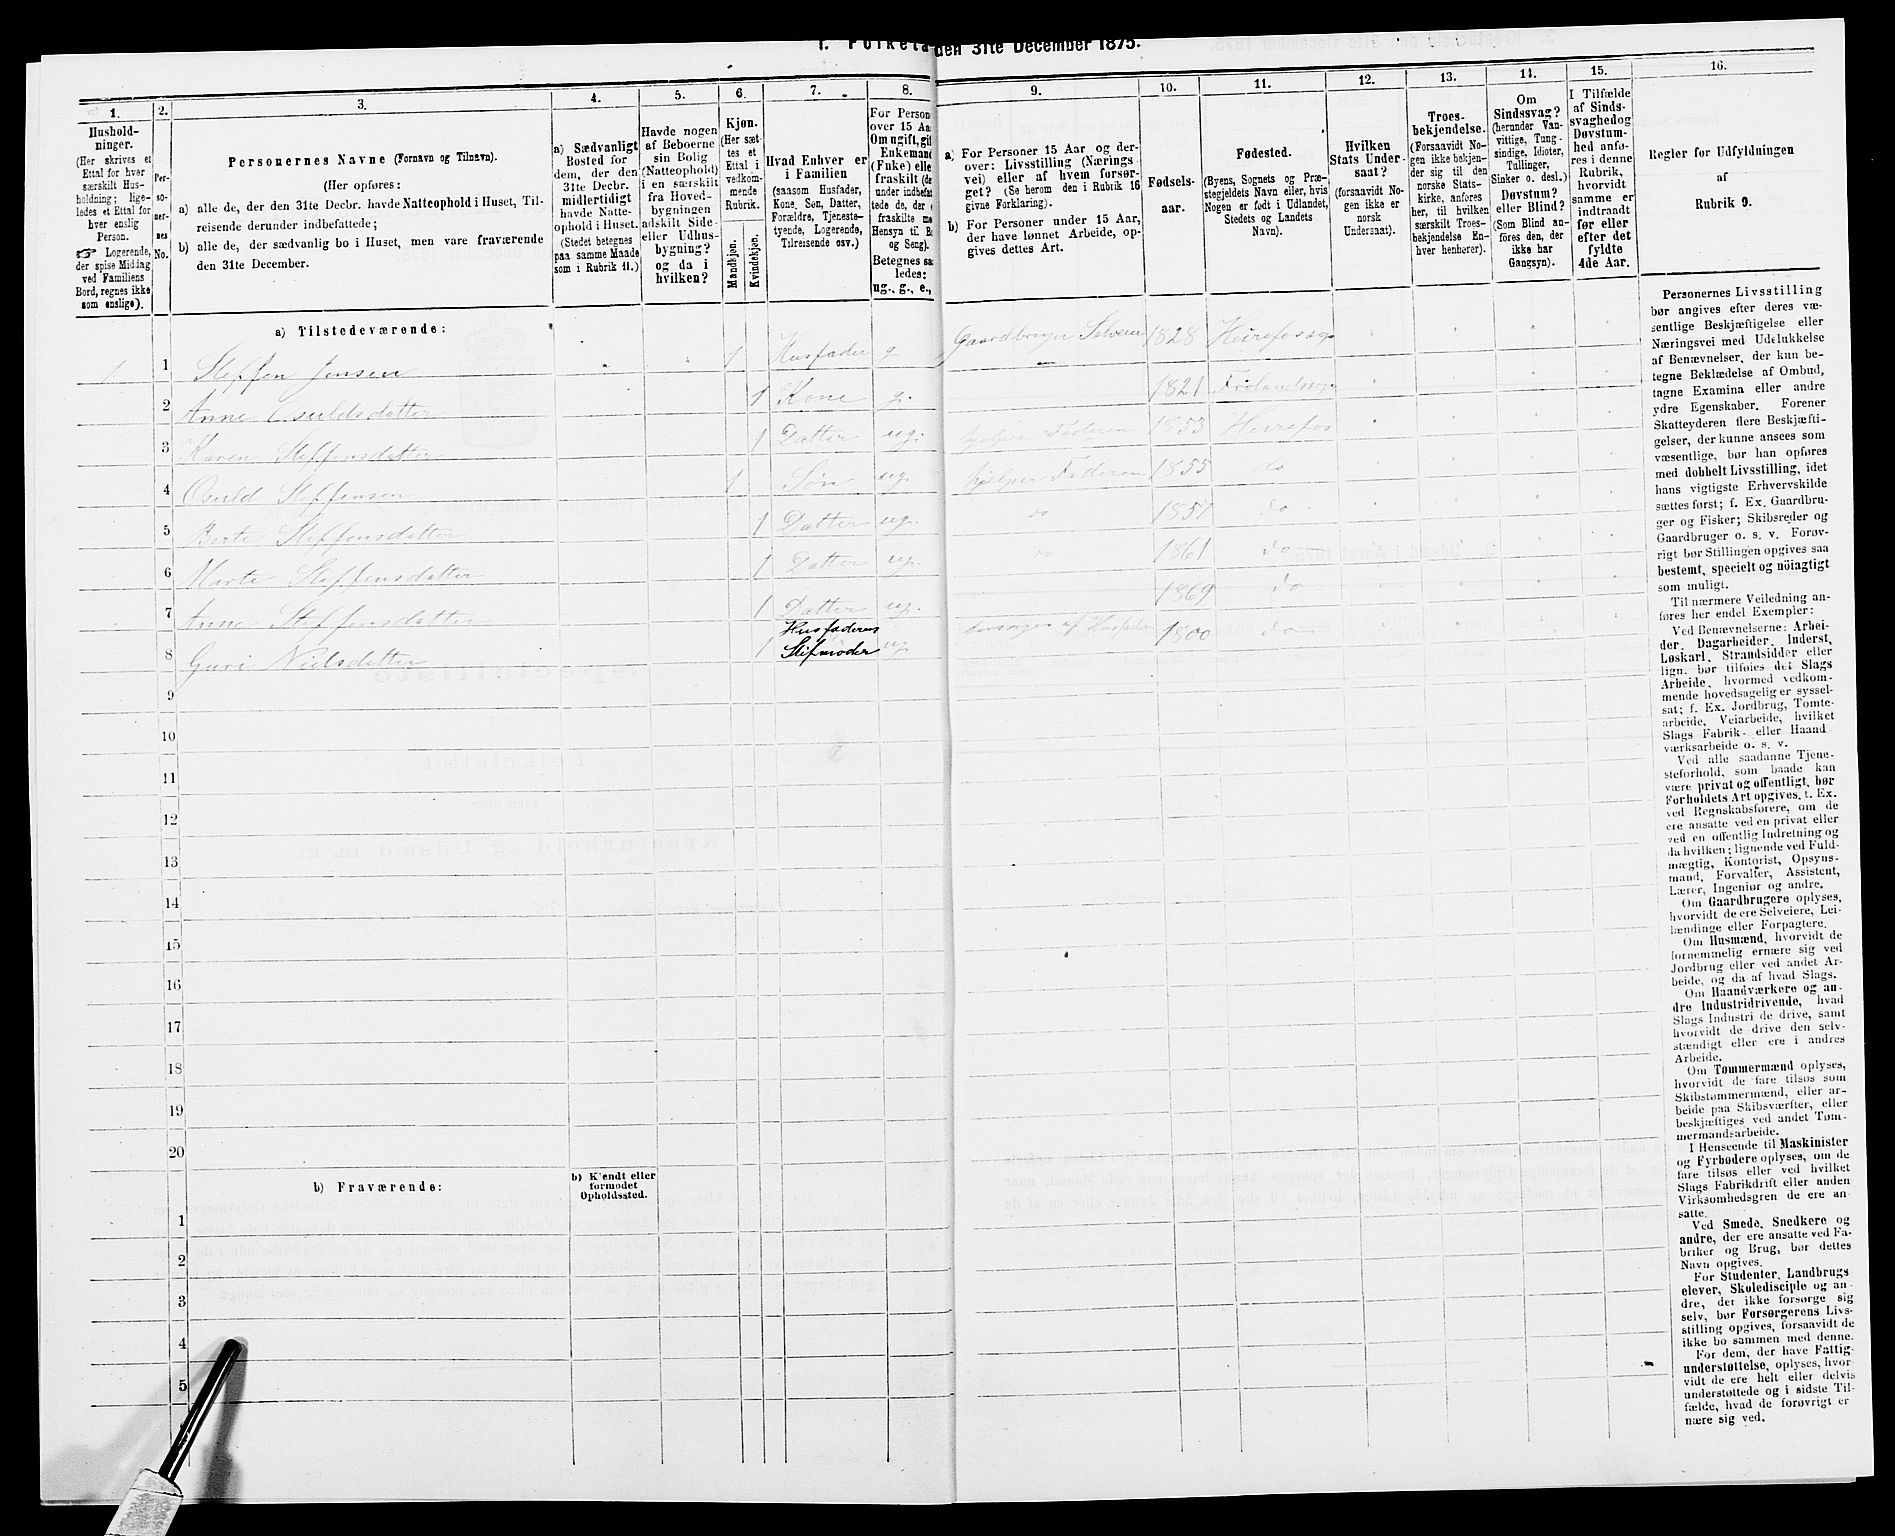 1. Folketa den 31te December 1875.
1. 2. 3. 4. 5. 6. 7. 8. 9. 10. 11. 12. 13. 14. 15. 16.
Hushold-
ninger.
(Her skrives et
Ettal for hver
særskilt Hus-
holdning; lige-
ledes et Ettal for
hver enslig
Person.
☞ Logerende,
der spise Middag
ved Familiens
Bord, regnes ikke
som enslige).
Per-
so-
ner-
nes
No.
Personernes Navne (Fornavn og Tilnavn).
(Her opføres:
a) alle de, der den 31te Decbr. havde Natteophold i Huset, Til-
reisende derunder indbefattede;
b) alle de, der sædvanlig bo i Huset, men vare fraværende
den 31te December.
a) Sædvanligt
Bosted for
dem, der den
31te Decbr.
midlertidigt
havde Natte-
ophold i Huset.
(Stedet betegnes
paa samme Maade
som i Rubrik 11.)
Havde nogen
af Beboerne
sin Bolig
(Natteophold)
i en særskilt
fra Hoved-
bygningen
adskilt Side-
eller Udhus-
bygning?
og da i
hvilken?
Kjøn.
(Her sæt-
tes et
Ettal i
vedkom-
mende
Rubrik.
Mandkjøn.
Kvindekjøn.
Hvad Enhver er
i Familien
(saasom Husfader,
Kone, Søn, Datter,
Forældre, Tjeneste-
tyende, Logerende,
Tilreisende osv.)
For Person
over 15 Aa
Om ugift, gif
Enkemand
(Enke) elle
fraskilt (de
under indbefat
tede de, der e
fraskilte me
Hensyn til Bo
og Seng).
Betegnes saa
ledes:
ug., g., e.,
a) For Personer 15 Aar og der-
over: Livsstilling (Nærings
vei) eller af hvem forsør-
get? (Se herom den i Rubrik 16
givne Forklaring).
b) For Personer under 15 Aar,
der have lønnet Arbeide, op-
gives dettes Art.
Fødsels-
aar.
Fødested.
(Byens, Sognets og Præ-
stegjeldets Navn eller, hvis
Nogen er født i Udlandet,
Stedets og Landets
Navn).
Hvilken
Stats Under-
saat?
(forsaavidt No-
gen ikke er
norsk
Undersaat).
Troes-
bekjendelse.
(Forsaavidt No-
gen ikke bekjen-
der sig til den
norske Stats-
kirke, anføres
her, til hvilken
særskilt Troes-
bekjendelse En-
hver henhører).
Om
Sindssvag?
(herunder Van-
vittige, Tung-
sindige, Idioter,
Tullinger,
Sinker o. desl.)
Døvstum?
eller Blind?
(Som Blind an-
føres den, der
ikke har
Gangsyn).
I Tilfælde
af Sinds-
svaghed og
Døvstum-
hed anfø-
res i denne
Rubrik,
hvorvidt
samme er
indtraadt
før eller
efter det
fyldte
4de Aar.
Regler for Udfyldningen
af
Rubrik 9.
a) Tilstedeværende:
1 1 Steffen Jensen 1 Husfader g Gaardbruger Selveier 1828 Heirefossogn
2 Anne Osuldsdatter 1 Kone g. 1821 Frolandssogn
3 Karen Steffensdatter 1 Datter ug. hjelper Faderen 1853 Heirefos
4 Osuld Steffensen 1 Søn ug. hjelper Faderen 1855 do
5 Berte Steffensdatter 1 Datter ug. do 1857 do
6 Marte Steffensdatter 1 Datter ug. do 1861 do
7 Anne Steffensdatter 1 Datter ug. 1869 do
8 Guri Nielsdatter 1 Husfaderens
Stifmoder ug. forsørges af 1800 do
9
10
11
12
13
14
15
16
17
18
19
20
b) Fraværende:
b) Kjendt eller
formodet
Opholdssted.
1
2
3
4
5
Personernes Livsstilling
bør angives efter deres væ-
sentlige Beskjæftigelse eller
Næringsvei med Udelukkelse
af Benævnelser, der kun be-
tegne Beklædelse af Ombud,
tagne Examina eller andre
ydre Egenskaber. Forener
Skatteyderen flere Beskjæfti-
gelser, der kunne ansees som
væsentlige, bør han opføres
med dobbelt Livsstilling, idet
hans vigtigste Erhvervskilde
sættes først; f. Ex. Gaardbru-
ger og Fisker; Skibsreder og
Gaardbruger o. s. v. Forøv-
rigt bør Stillingen opgives saa
bestemt, specielt og nöiagtigt
som muligt.
Til nærmere Veiledning an-
føres her endel Exempler:
Ved Benævnelserne: Arbei-
der, Dagarbeider, Inderst,
Løskarl, Strandsidder eller
lign. bør tilføies det Slags
Arbeide, hvormed vedkom-
mende hovedsagelig er syssel-
sat; f. Ex. Jordbrug, Tomte-
arbeide, Veiarbeide, hvilket
Slags Fabrik- eller Haand
værksarbeide o. s. v.
Ved alle saadanne Tjene-
steforhold, som baade kan
være privat og offentligt, bør
Forholdets Art opgives, t. Ex.
ved Regnskabsførere, om de
ere ansatte ved en privat eller
ved en offentlig Indretning og
da hvilken; lignende ved Fuld-
mægtig, Kontorist, Opsyns-
mand, Forvalter, Assistent,
Lærer, Ingeniør og andre.
Om Gaardbrugere oplyses,
hvorvidt de ere Selveiere, Lei-
lændinge eller Forpagtere.
Om Husmænd, hvorvidt de
fornemmelig ernære sig ved
Jordbrug eller ved andet Ar-
beide, og da af hvad Slags.
Om Haandværkere og an-
dre Industridrivende, hvad
Slags Industri de drive, samt
hvorvidt de drive den selv-
stændigt eller ere i andres
Arbeide.
Om Tømmermænd oplyses,
hvorvidt de fare tilsøs som
Skibstømmermænd, eller ar-
beide paa Skibsværfter, eller
beskjæftiges ved andet Tøm-
mermandsarbeide.
I Henseende til Maskinister
og Fyrbødere oplyses, om de
fare tilsøs eller ved hvilket
Slags Fabrikdrift eller anden
Virksomhedsgren de ere an-
satte.
Ved Smede, Snedkere og
andre, der ere ansatte ved Fa-
briker og Brug, bør dettes
Navn opgives.
For Studenter, Landbrugs
elever, Skoledisciple og an-
dre, der ikke forsørge sig
selv, bør Forsørgerens Livs-
stilling opgives, forsaavidt de
ikke bo sammen med denne.
For dem, der have Fattig-
understøttelse, oplyses, hvor
vidt de ere helt eller delvis
understøttede og i sidste Til-
fælde, hvad de forøvrigt er
nære sig ved.